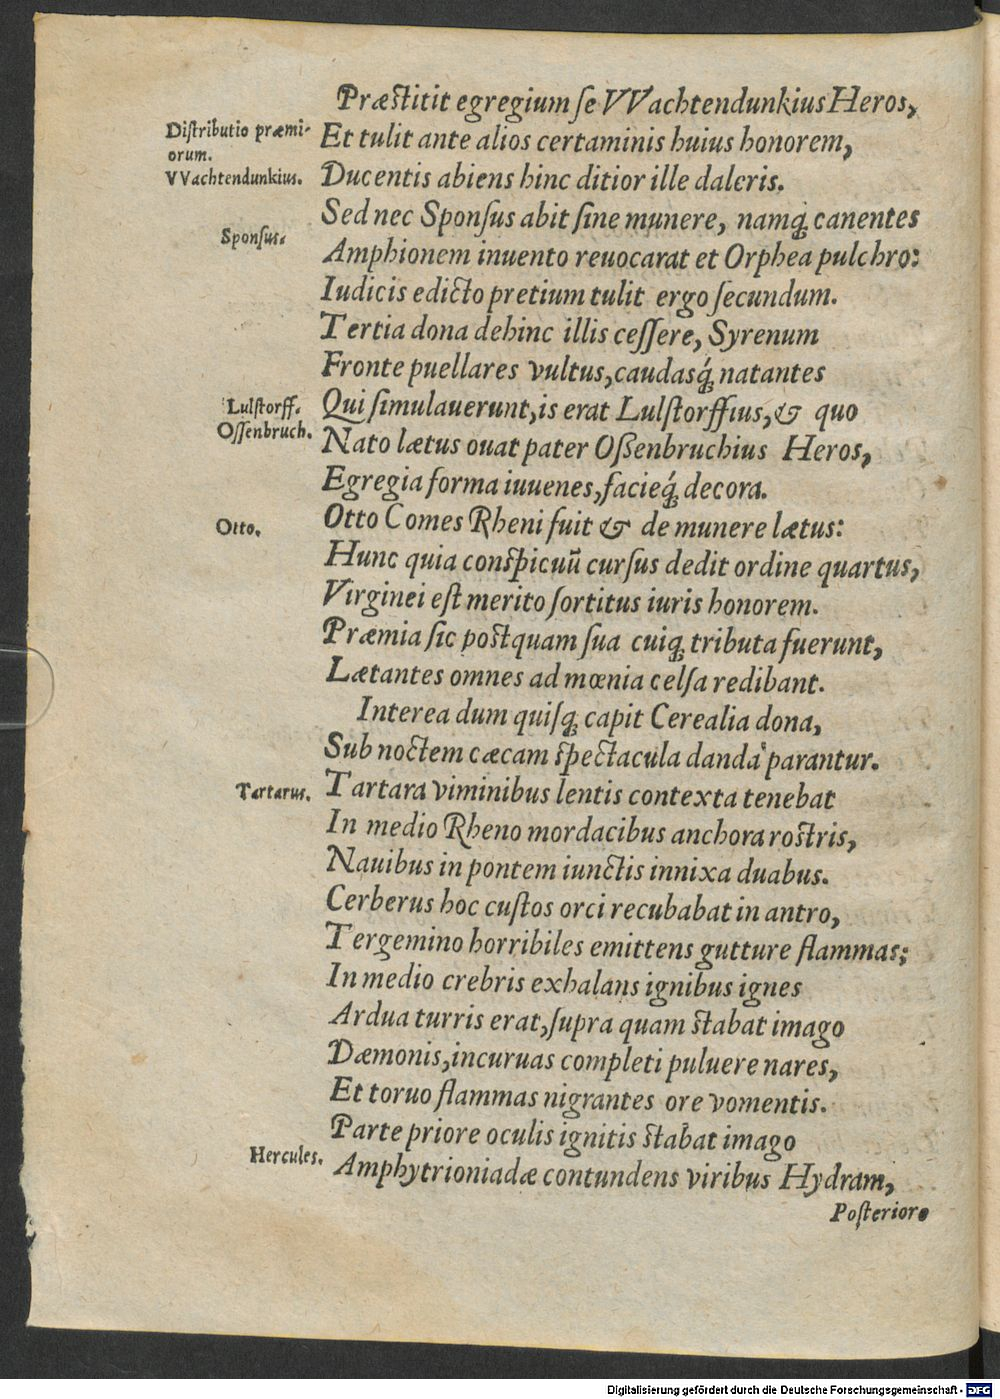 Præstitit egregium ſe VVachtendunkius Heros,
Diſtributio præmi-
orum.
VVachtendunkius.
Et tulit ante alios certaminis huius honorem,
Ducentis abiens hinc ditior ille daleris.
Sed nec Sponſus abit ſine munere, namq́; canentes
Sponſus.
Amphionem inuento reuocarat et Orphea pulchro:
Iudicis edicto pretium tulit ergo ſecundum.
Tertia dona dehinc illis ceſſere, Syrenum
Fronte puellares vultus, caudasq́; natantes
Lulſtorff.
Oſſenbruch.
Qui ſimulauerunt, is erat Lulſtorffius, & quo
Nato lætus ouat pater Oßenbruchius Heros,
Egregia forma iuuenes, facieq́; decora.
Otto.
Otto Comes Rheni fuit & de munere lætus:
Hunc quia conſpicuũ curſus dedit ordine quartus,
Virginei eſt merito ſortitus iuris honorem.
Præmia ſic poſtquam ſua cuiq; tributa fuerunt,
Lætantes omnes ad mœnia celſa redibant.
Interea dum quiſq; capit Cerealia dona,
Sub noctem cæcam ſpectacula danda parantur.
Tartarus.
Tartara viminibus lentis contexta tenebat
In medio Rheno mordacibus anchora roſtris,
Nauibus in pontem iunctis innixa duabus.
Cerberus hoc cuſtos orci recubabat in antro,
Tergemino horribiles emittens gutture flammas;
In medio crebris exhalans ignibus ignes
Ardua turris erat, ſupra quam ſtabat imago
Dæmonis, incuruas completi puluere nares,
Et toruo flammas nigrantes ore vomentis.
Parte priore oculis ignitis ſtabat imago
Hercules.
Amphytrioniadæ contundens viribus Hydram,
Poſteriore
Digitalisierung gefördert durch die Deutsche Forschungsgemeinschaft - DFG